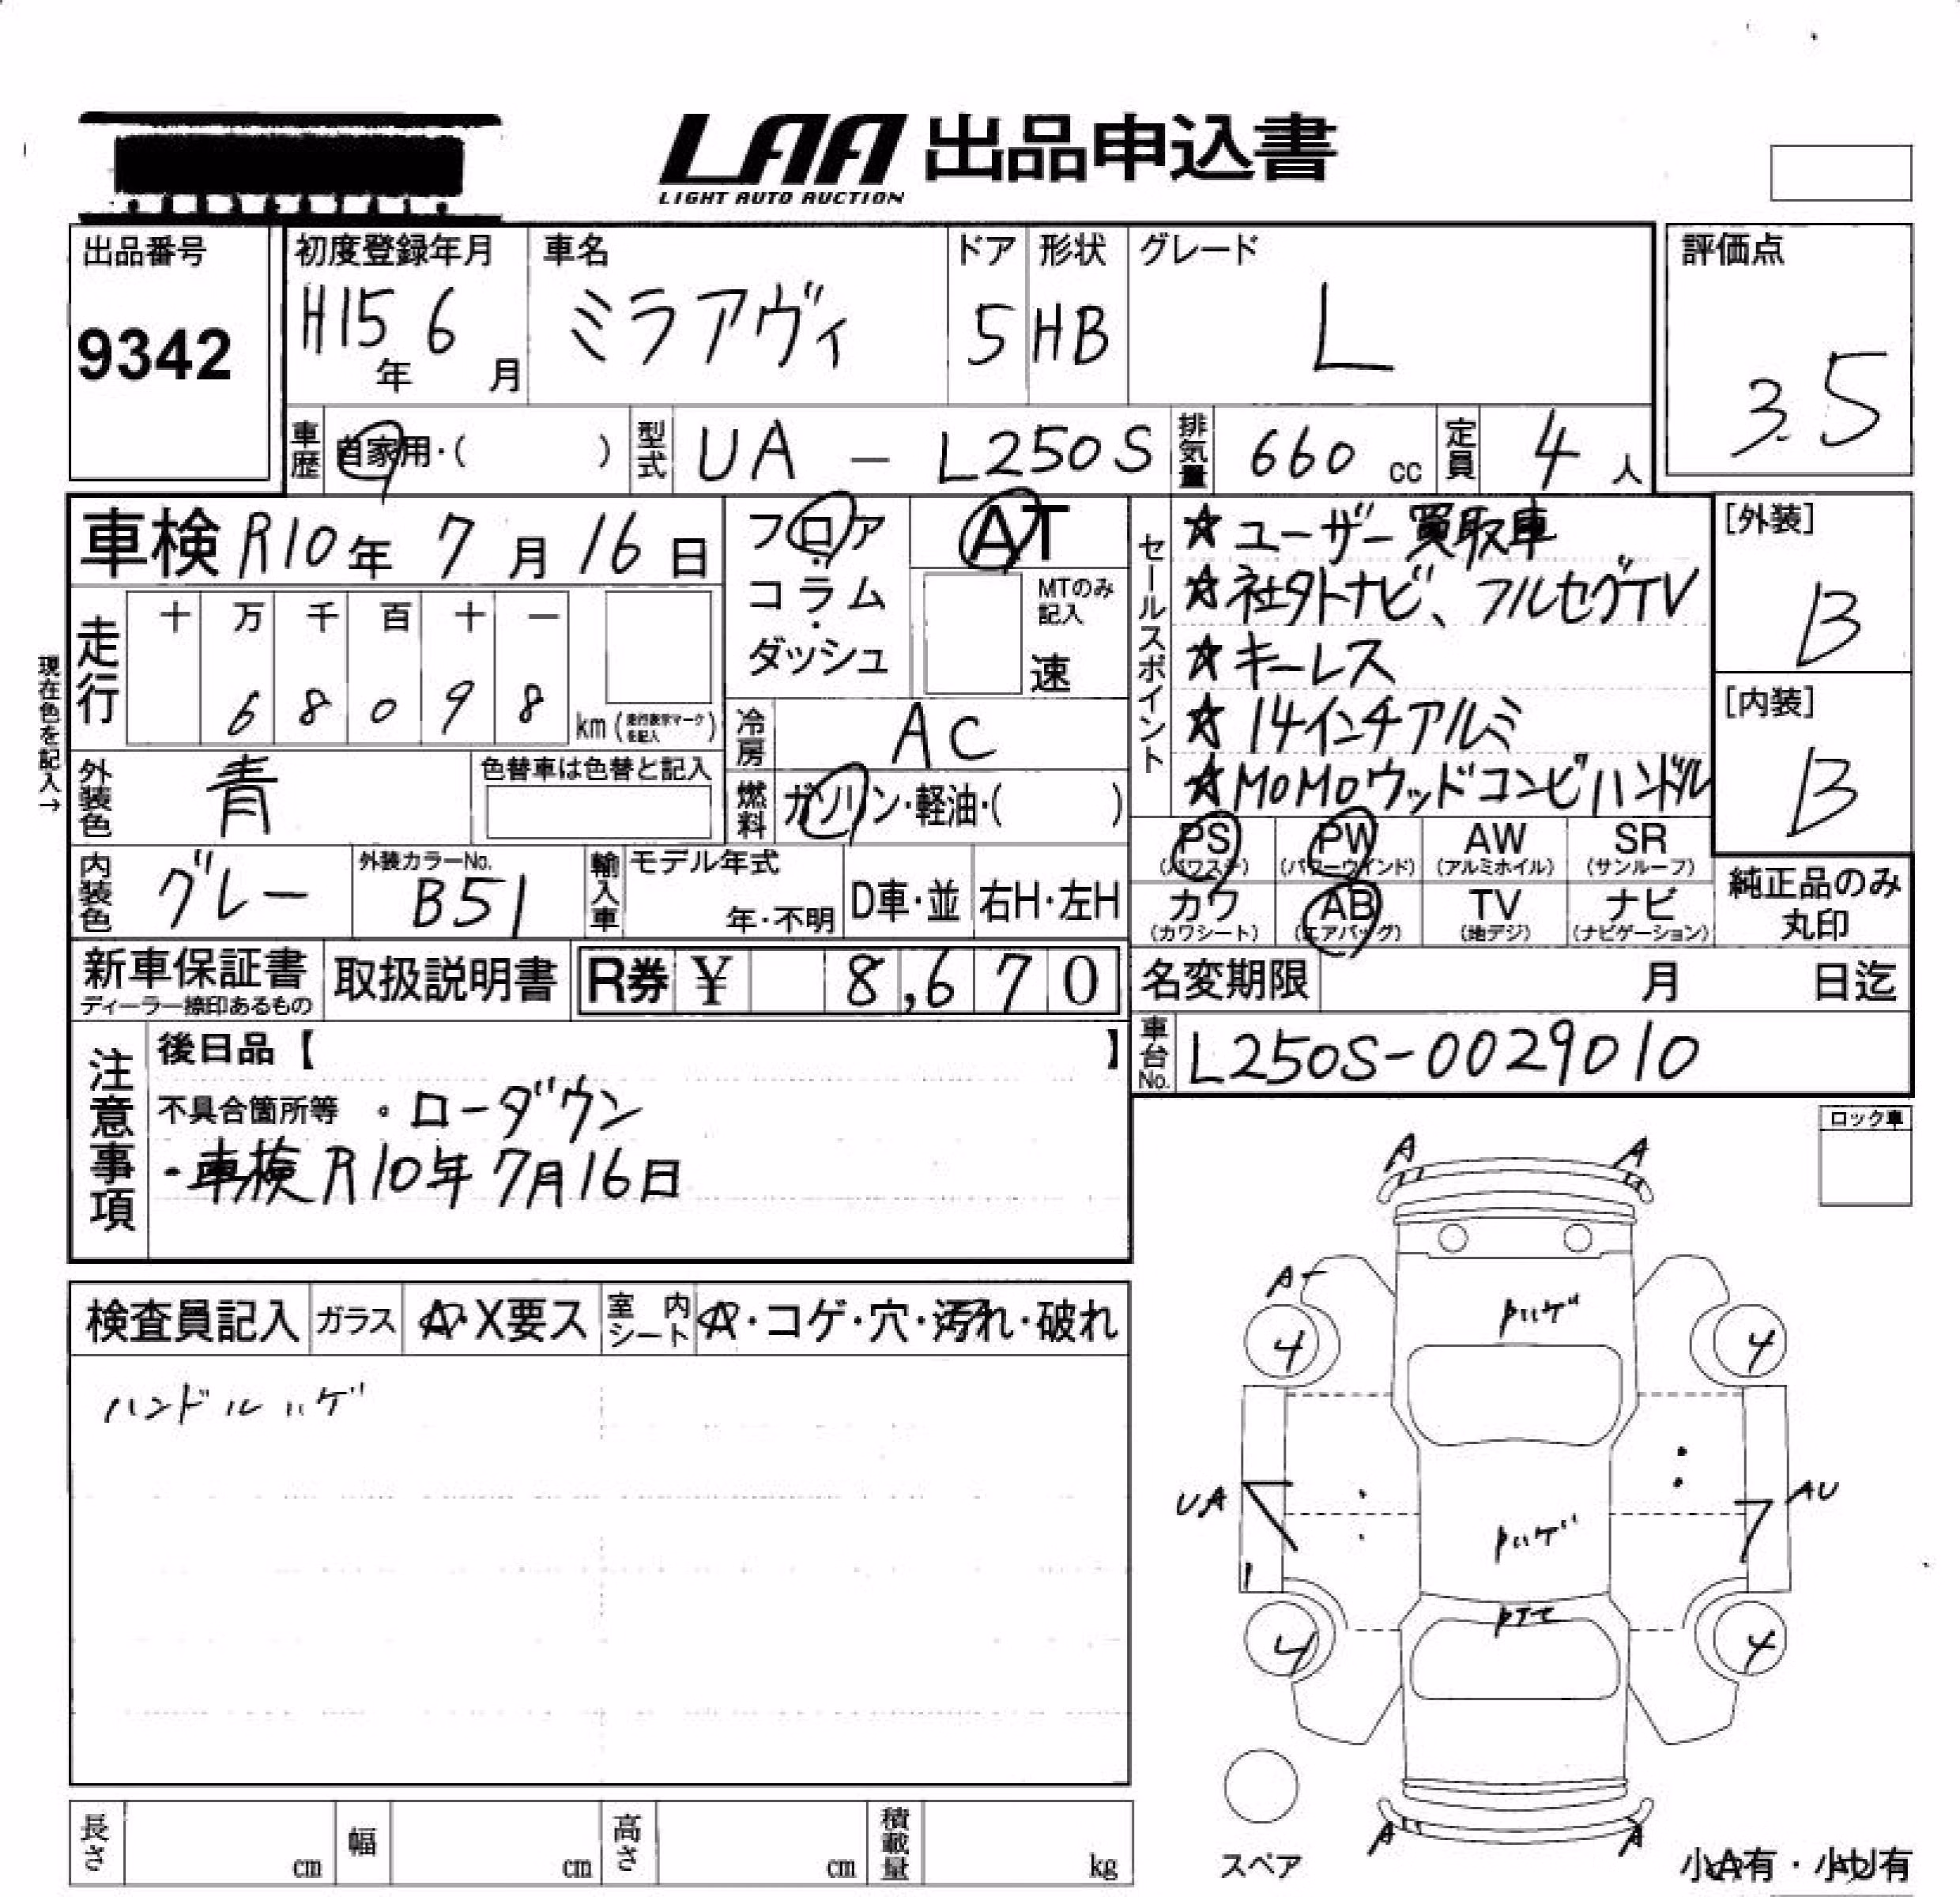 LAA 出品申込書
LIGHT AUTO AUCTION
出品番号
9342
初度登録年月
H15年 6月
車名
ミラアヴィ
ドア
5
形状
HB
グレード
L
評価点
3.5
車歴 自家用・( )
型式 UA - L250S
排気量 660 cc
定員 4 人
車検 R10年 7月 16日
フロア・コラム・ダッシュ
AT
MTのみ記入
速
セールスポイント
☆ユーザー買取車
☆社外ナビ、フルセグTV
☆キーレス
☆14インチアルミ
☆MOMOウッドコンビハンドル
[外装]
B
[内装]
B
現在色を記入→
走行
十 万 千 百 十 一
6 8 0 9 8 km (走行表示マークを記入)
冷房 AC
外装色 青
色替車は色替と記入
燃料 ガソリン・軽油・( )
PS (パワステ)
PW (パワーウインド)
AW (アルミホイル)
SR (サンルーフ)
カワ (カワシート)
AB (エアバッグ)
TV (地デジ)
ナビ (ナビゲーション)
純正品のみ丸印
内装色 グレー
外装カラーNo. B51
輸入車 モデル年式
年・不明
D車・並
右H・左H
新車保証書
ディーラー捺印あるもの
取扱説明書
R券 ¥ 8,670
名変期限 月 日迄
車台No. L250S-0029010
注意事項
後日品【 】
不具合箇所等 ・ローダウン
・車検R10年7月16日
ロック車
検査員記入 ガラス A・X要ス 室内シート A・コゲ・穴・汚れ・破れ
ハンドルハゲ
A A
A
4 4
UA AU
4 4
A A
スペア
小A有・小U有
長さ cm 幅 cm 高さ cm 積載量 kg